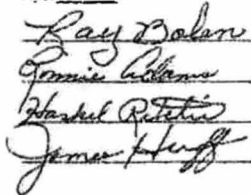 Ray Bolan
Ronnie Adams
Haskel
James Huff